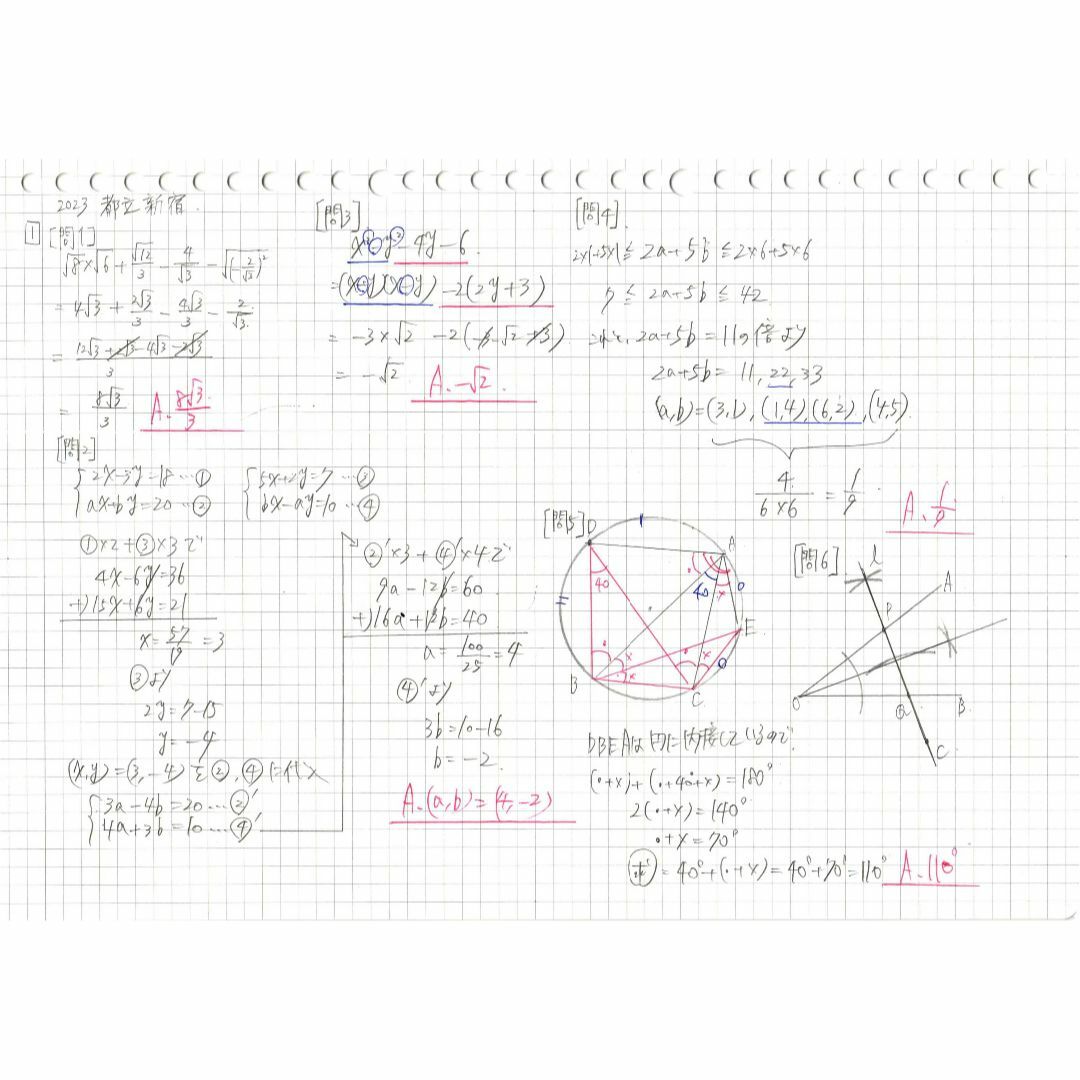 2023 都立新宿.
1 [問1]
√8×√6+√12/3-4/√3-√(-2/√3)²
=4√3+2√3/3-4√3/3-2/√3.
=(12√3+2√3-4√3-2√3)/3
=8√3/3 A. 8√3/3
[問2]
{2x-3y=18…①
ax+by=20…②
{5x+2y=7…③
bx-ay=10…④
①×2+③×3で
4x-6y=36
+)15x+6y=21
x=57/19=3
③より
2y=7-15
y=-4
(x,y)=(3,-4)を②,④に代入
{3a-4b=20…②'
4a+3b=10…④'
②'×3+④'×4で
9a-12b=60
+)16a+12b=40
a=100/25=4
④'より
3b=10-16
b=-2.
A. (a,b)=(4,-2)
[問3]
-4y-6.
-2(2y+3)
=-3×√2 -2(-3-√2+3)
=-√2 A. -√2.
[問4].
2×1+5×1≦2a+5b≦2×6+5×6
7≦2a+5b≦42.
2a+5b=11の倍より
2a+5b=11,22,33
(a,b)=(3,1),(1,4),(6,2),(4,5).
4/(6×6)=1/9. A. 1/9
[問5]
D
A
40
40
E
B
C
DBEAは円に内接しているので.
(・+×)+(・+40+×)=180°
2(・+×)=140°
・+×=70°
求=40°+(・+×)=40°+70°=110° A. 110°
[問6].
l
A
P
O
Q
B
C